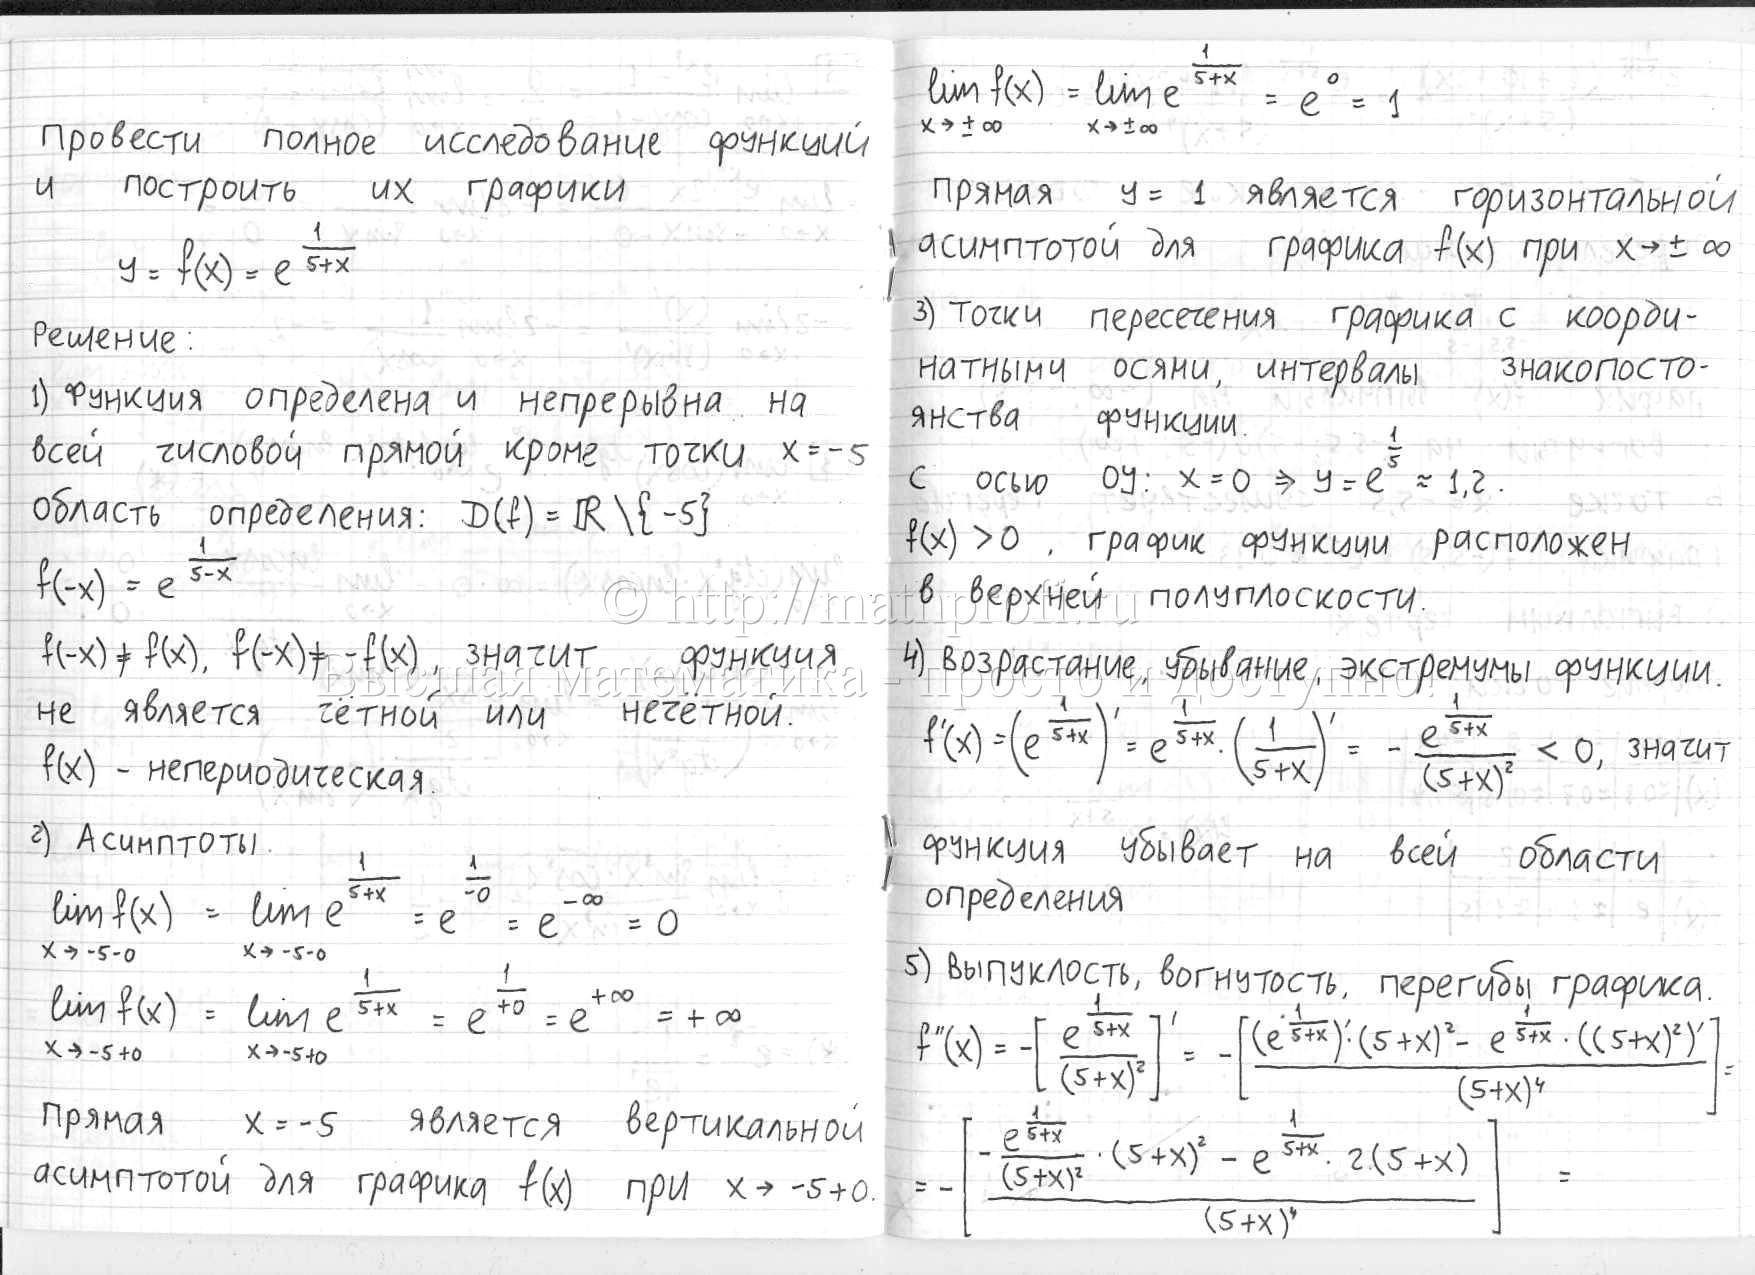 Провести полное исследование функций
и построить их графики
y = f(x) = e^(1/(5+x))
Решение:
1) Функция определена и непрерывна на
всей числовой прямой кроме точки x = -5
область определения: D(f) = ℝ \ {-5}
f(-x) = e^(1/(5-x))
f(-x) ≠ f(x), f(-x) ≠ -f(x), значит функция
не является чётной или нечётной.
f(x) - непериодическая.
2) Асимптоты.
lim_{x→-5-0} f(x) = lim_{x→-5-0} e^(1/(5+x)) = e^(1/-0) = e^(-∞) = 0
lim_{x→-5+0} f(x) = lim_{x→-5+0} e^(1/(5+x)) = e^(1/+0) = e^(+∞) = +∞
Прямая x = -5 является вертикальной
асимптотой для графика f(x) при x → -5+0.
lim_{x→±∞} f(x) = lim_{x→±∞} e^(1/(5+x)) = e^0 = 1
Прямая y = 1 является горизонтальной
асимптотой для графика f(x) при x → ±∞
3) Точки пересечения графика с коорди-
натными осями, интервалы знакопосто-
янства функции.
с осью OY: x = 0 ⇒ y = e^(1/5) ≈ 1,2.
f(x) > 0, график функции расположен
в верхней полуплоскости.
4) Возрастание, убывание, экстремумы функции.
f'(x) = (e^(1/(5+x)))' = e^(1/(5+x)) · (1/(5+x))' = - e^(1/(5+x))/(5+x)^2 < 0, значит
функция убывает на всей области
определения
5) Выпуклость, вогнутость, перегибы графика.
f''(x) = -[e^(1/(5+x))/(5+x)^2]' = -[((e^(1/(5+x)))' · (5+x)^2 - e^(1/(5+x)) · ((5+x)^2)')/(5+x)^4] =
= -[(-e^(1/(5+x))/(5+x)^2 · (5+x)^2 - e^(1/(5+x)) · 2·(5+x))/(5+x)^4] =
© http://mathprofi.ru
Высшая математика - просто и доступно!